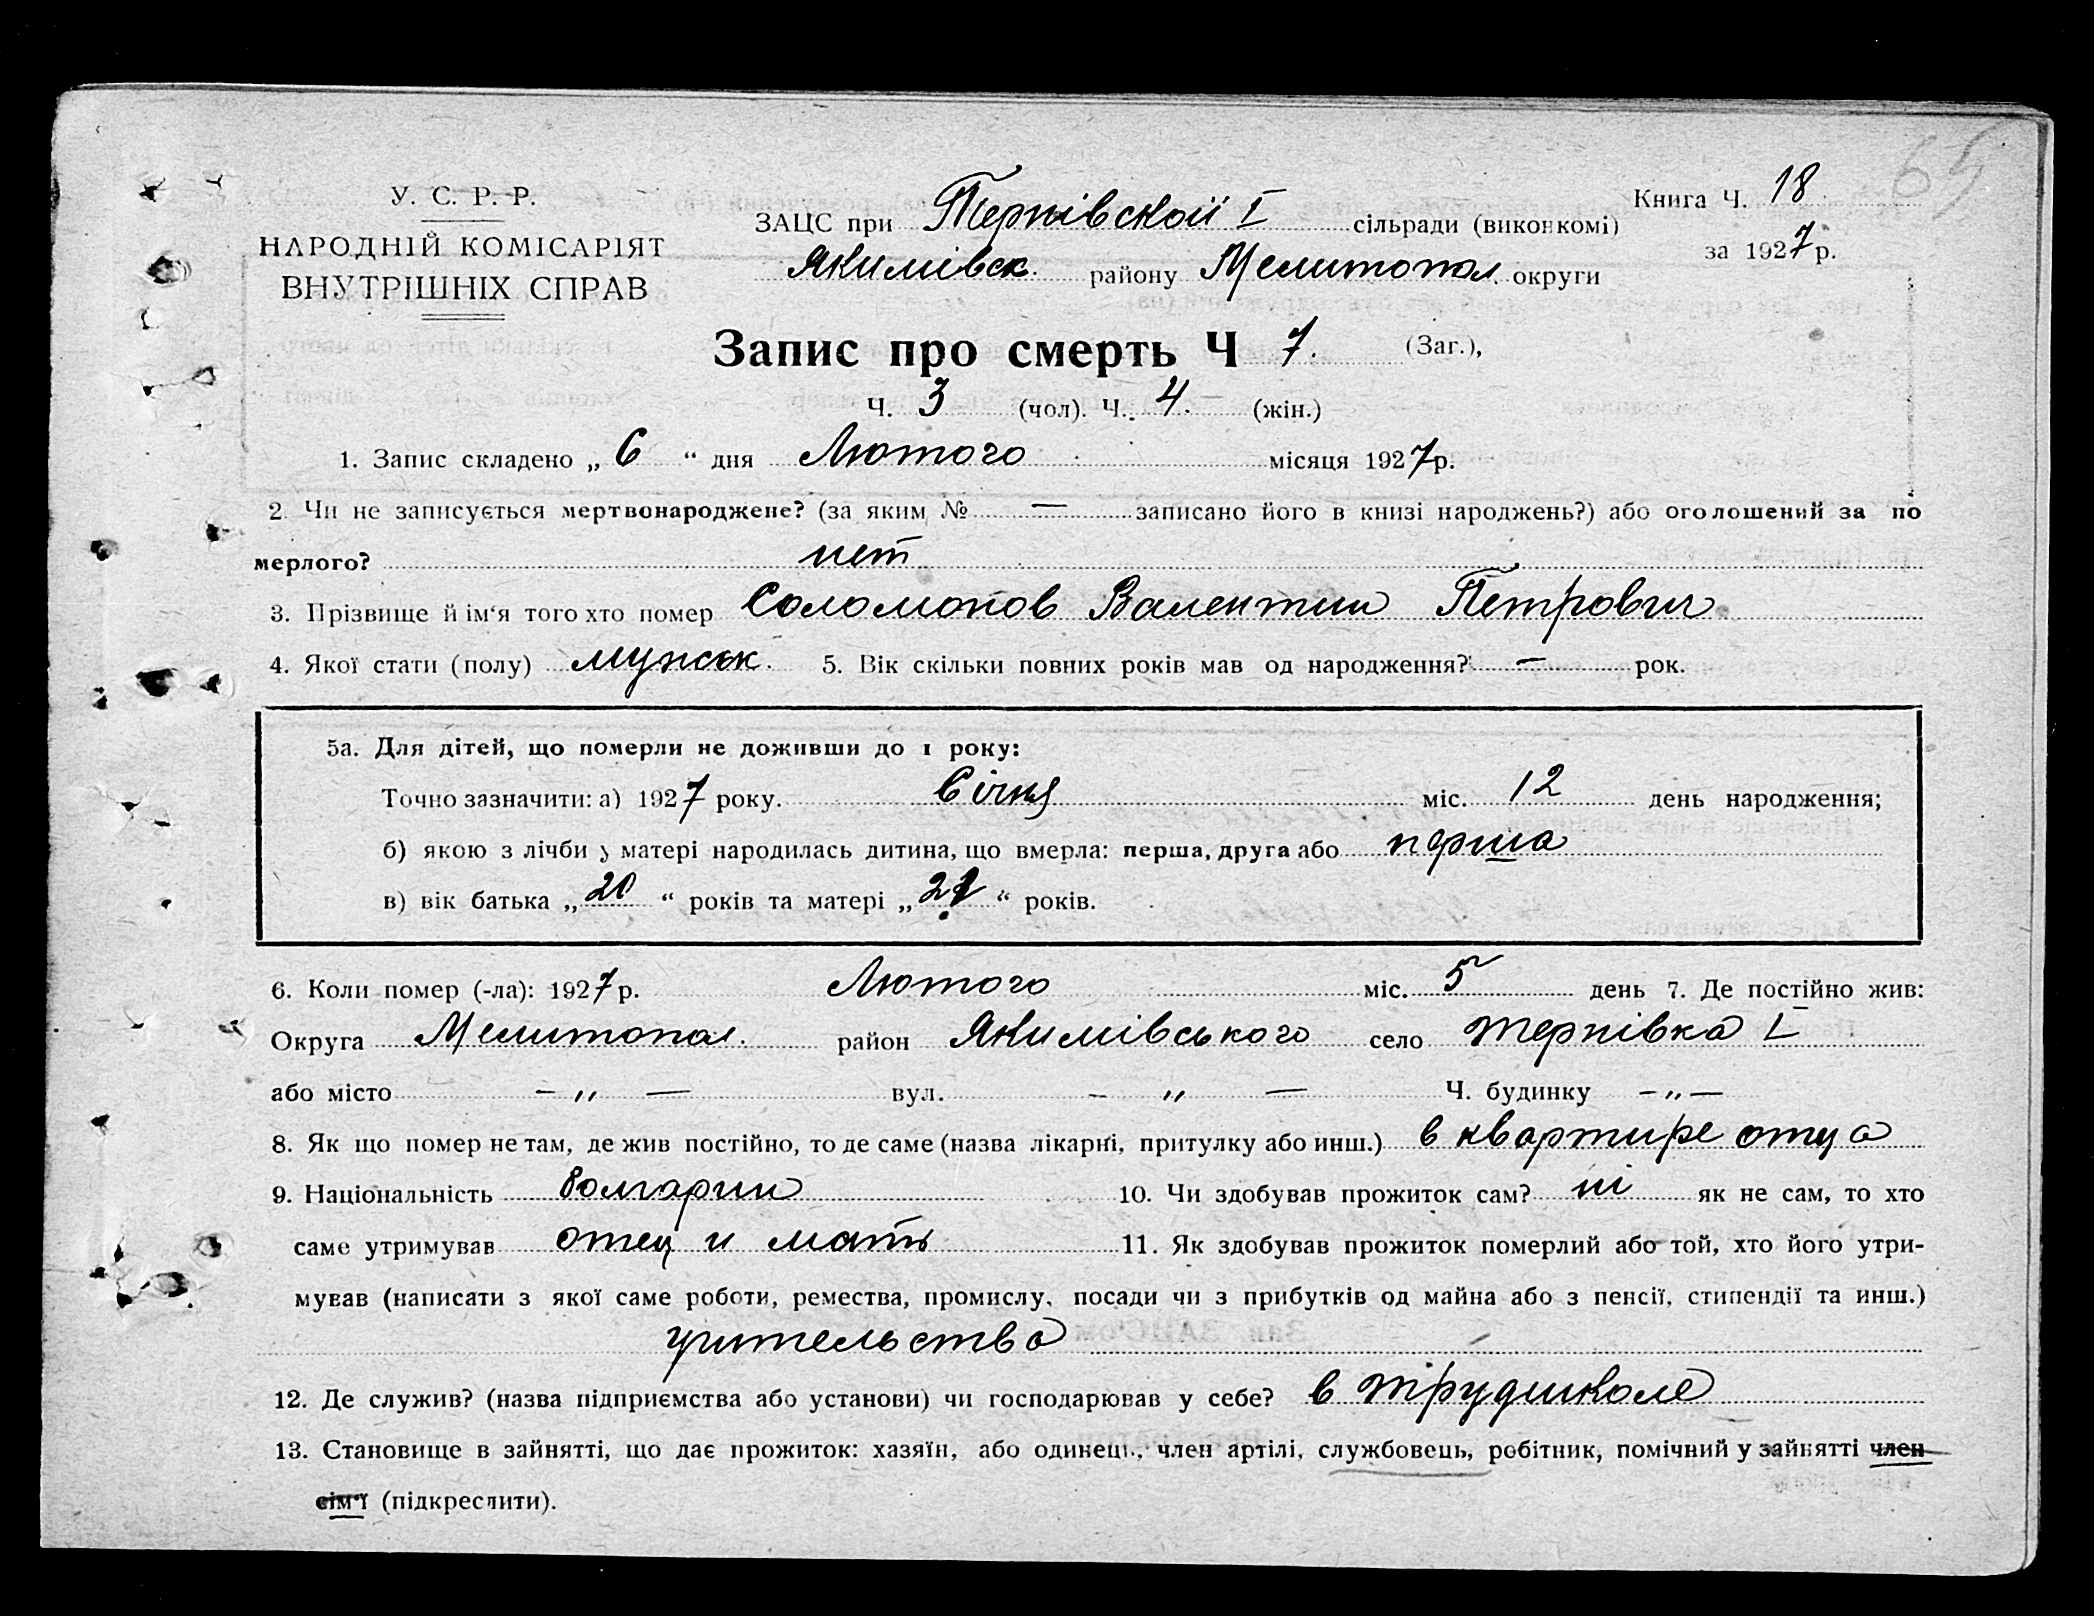 65
У. С. Р. Р.
НАРОДНІЙ КОМІСАРІЯТ
ВНУТРІШНІХ СПРАВ
ЗАЦС при Терпівскоїї І сільради (виконкомі)
Книга Ч. 18
Якимівск. району Мелитопол. округи
за 1927 р.
Запис про смерть Ч 7. (Заг.),
Ч. 3 (чол). Ч. 4. (жін.)
1. Запис складено „ 6 “ дня Лютого місяця 1927 р.
2. Чи не записується мертвонароджене? (за яким № — записано його в книзі народжень?) або оголошений за по
мерлого? нет
3. Прізвище й ім‘я того хто помер Соломонов Валентин Петрович
4. Якої стати (полу) мужск. 5. Вік скільки повних років мав од народження? — рок.
5а. Для дітей, що померли не доживши до 1 року:
Точно зазначити: а) 1927 року. Січня міс. 12 день народження;
б) якою з лічби у матері народилась дитина, що вмерла: перша, друга або перша
в) вік батька „ 20 “ років та матері „ “ років.
6. Коли помер (-ла): 1927 р. Лютого міс. 5 день 7. Де постійно жив:
Округа Мелитопол. район Якимівського село Терпівка І
або місто — „ — вул. — „ — Ч. будинку — „ —
8. Як що помер не там, де жив постійно, то де саме (назва лікарні, притулку або инш.) в квартире отца
9. Національність болгарин 10. Чи здобував прожиток сам? ні як не сам, то хто
саме утримував отец и мать 11. Як здобував прожиток померлий або той, хто його утри-
мував (написати з якої саме роботи, ремества, промислу, посади чи з прибутків од майна або з пенсії, стипендії та инш.)
учительства
12. Де служив? (назва підприємства або установи) чи господарював у себе? в трудшколе
13. Становище в зайнятті, що дає прожиток: хазяїн, або одинець, член артілі, службовець, робітник, помічний у зайнятті член
сім‘ї (підкреслити).